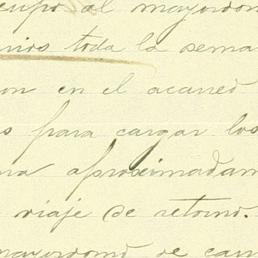 cupo al mayordom
nios toda la sema
on en el acarreo
s para cargar los
na aproximadam
viaje de retorno.
mayordomo de cam